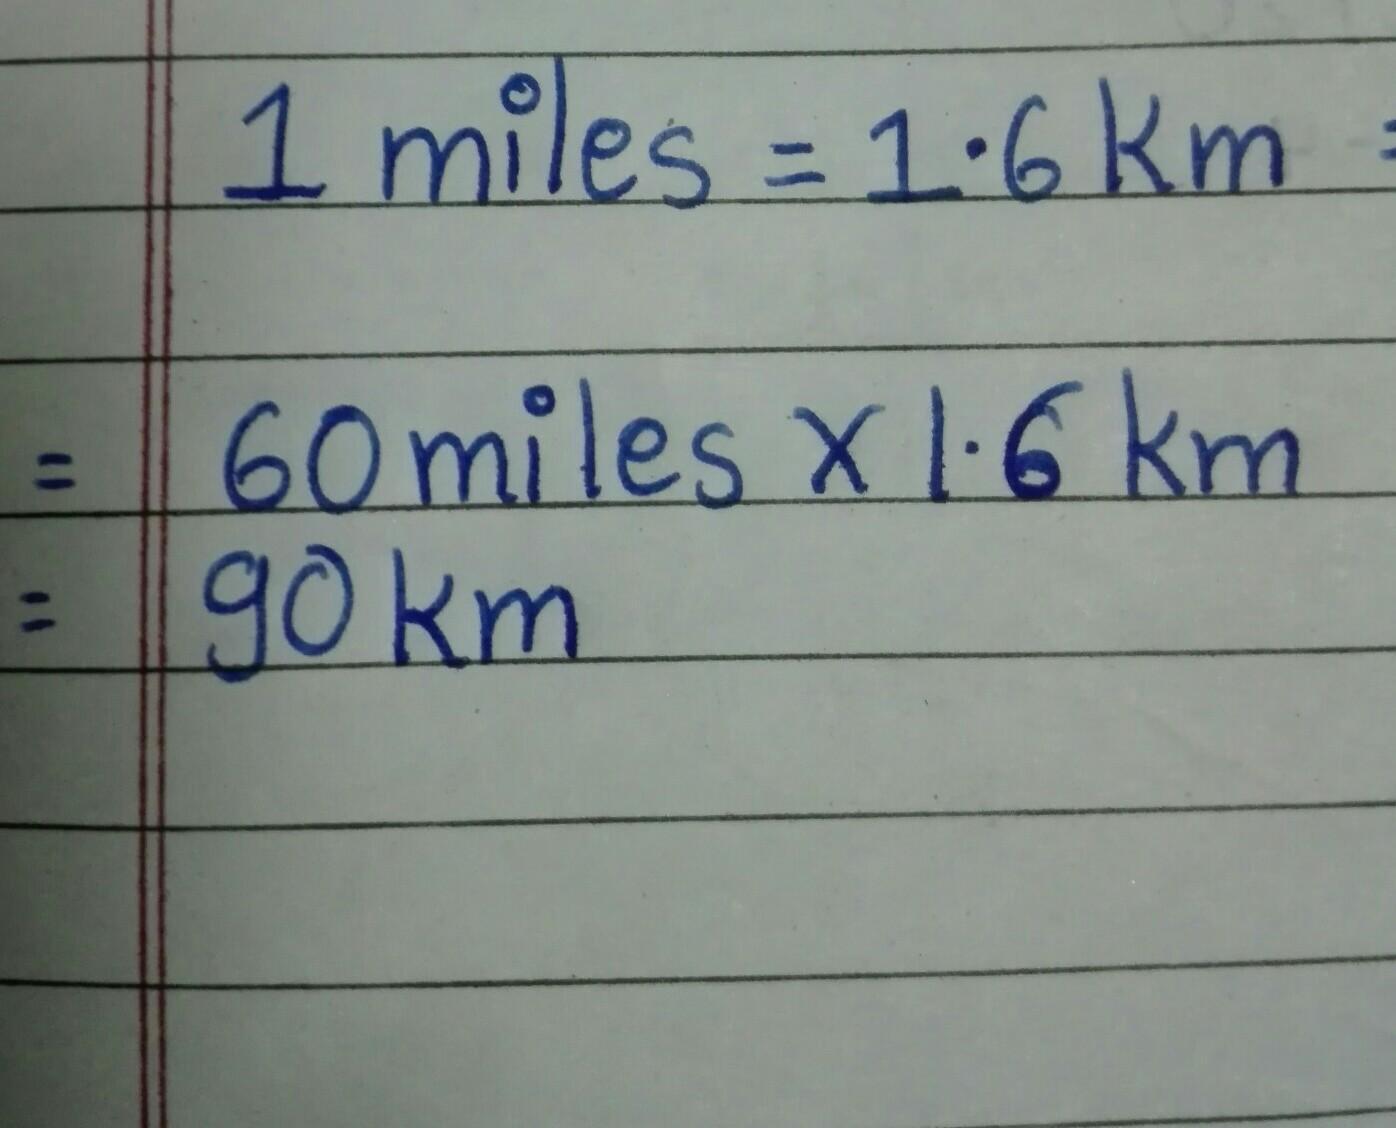 1 miles = 1.6 km =
= 60 miles x 1.6 km
= 90 km